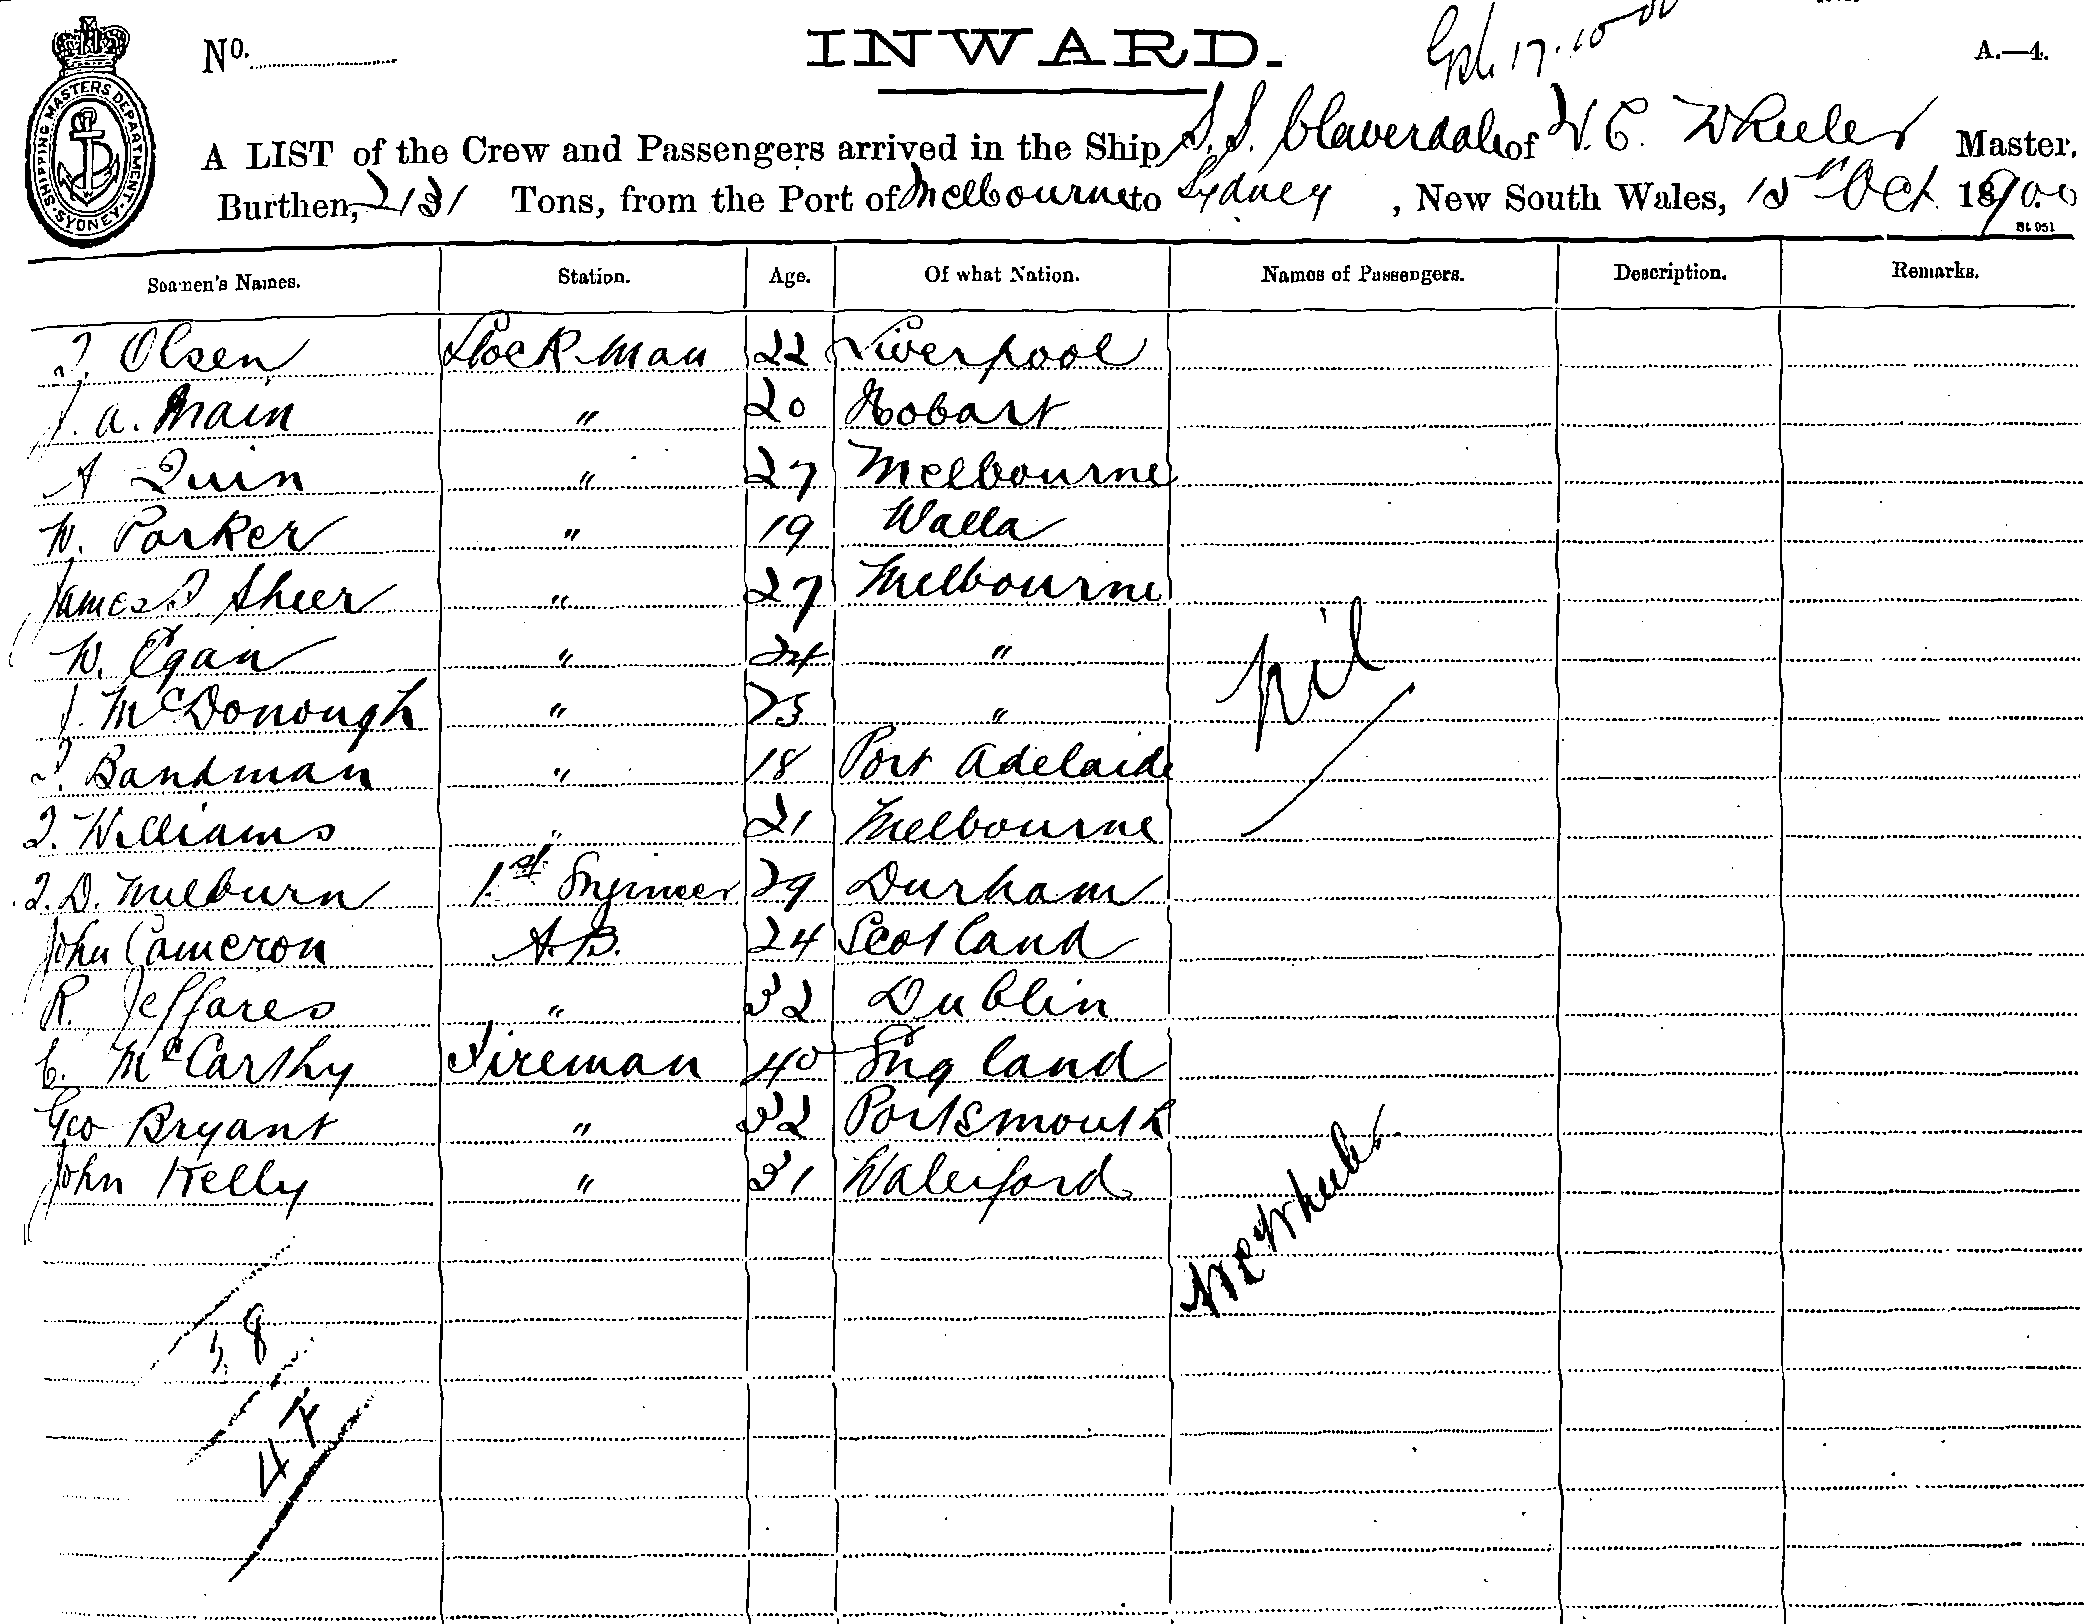 No.
INWARD.
17.10.00
A.—4.
SHIPPING MASTERS DEPARTMENT. SYDNEY.
A LIST of the Crew and Passengers arrived in the Ship S.S. Claverdale of W. C. Wheeler Master,
Burthen, 2131 Tons, from the Port of Melbourne to Sydney, New South Wales, 15th Oct 1900
St 951
Seamen's Names. Station. Age. Of what Nation. Names of Passengers. Description. Remarks.
Olsen Stockman 22 Liverpool
J. A. Main " 20 Hobart
A Quin " 27 Melbourne
W. Parker " 19 Walla
James Sheer " 27 Melbourne
W. Egan " 24 "
J. McDonough " 25 " nil
Bandman " 18 Port Adelaide
Williams " 21 Melbourne
D. Milburn 1st Engineer 29 Durham
John Cameron A.B. 24 Scotland
R. Jeffares " 32 Dublin
C. McCarthy Fireman 40 England
Geo Bryant " 32 Portsmouth
John Kelly " 31 Waterford
W C Wheeler
38
47